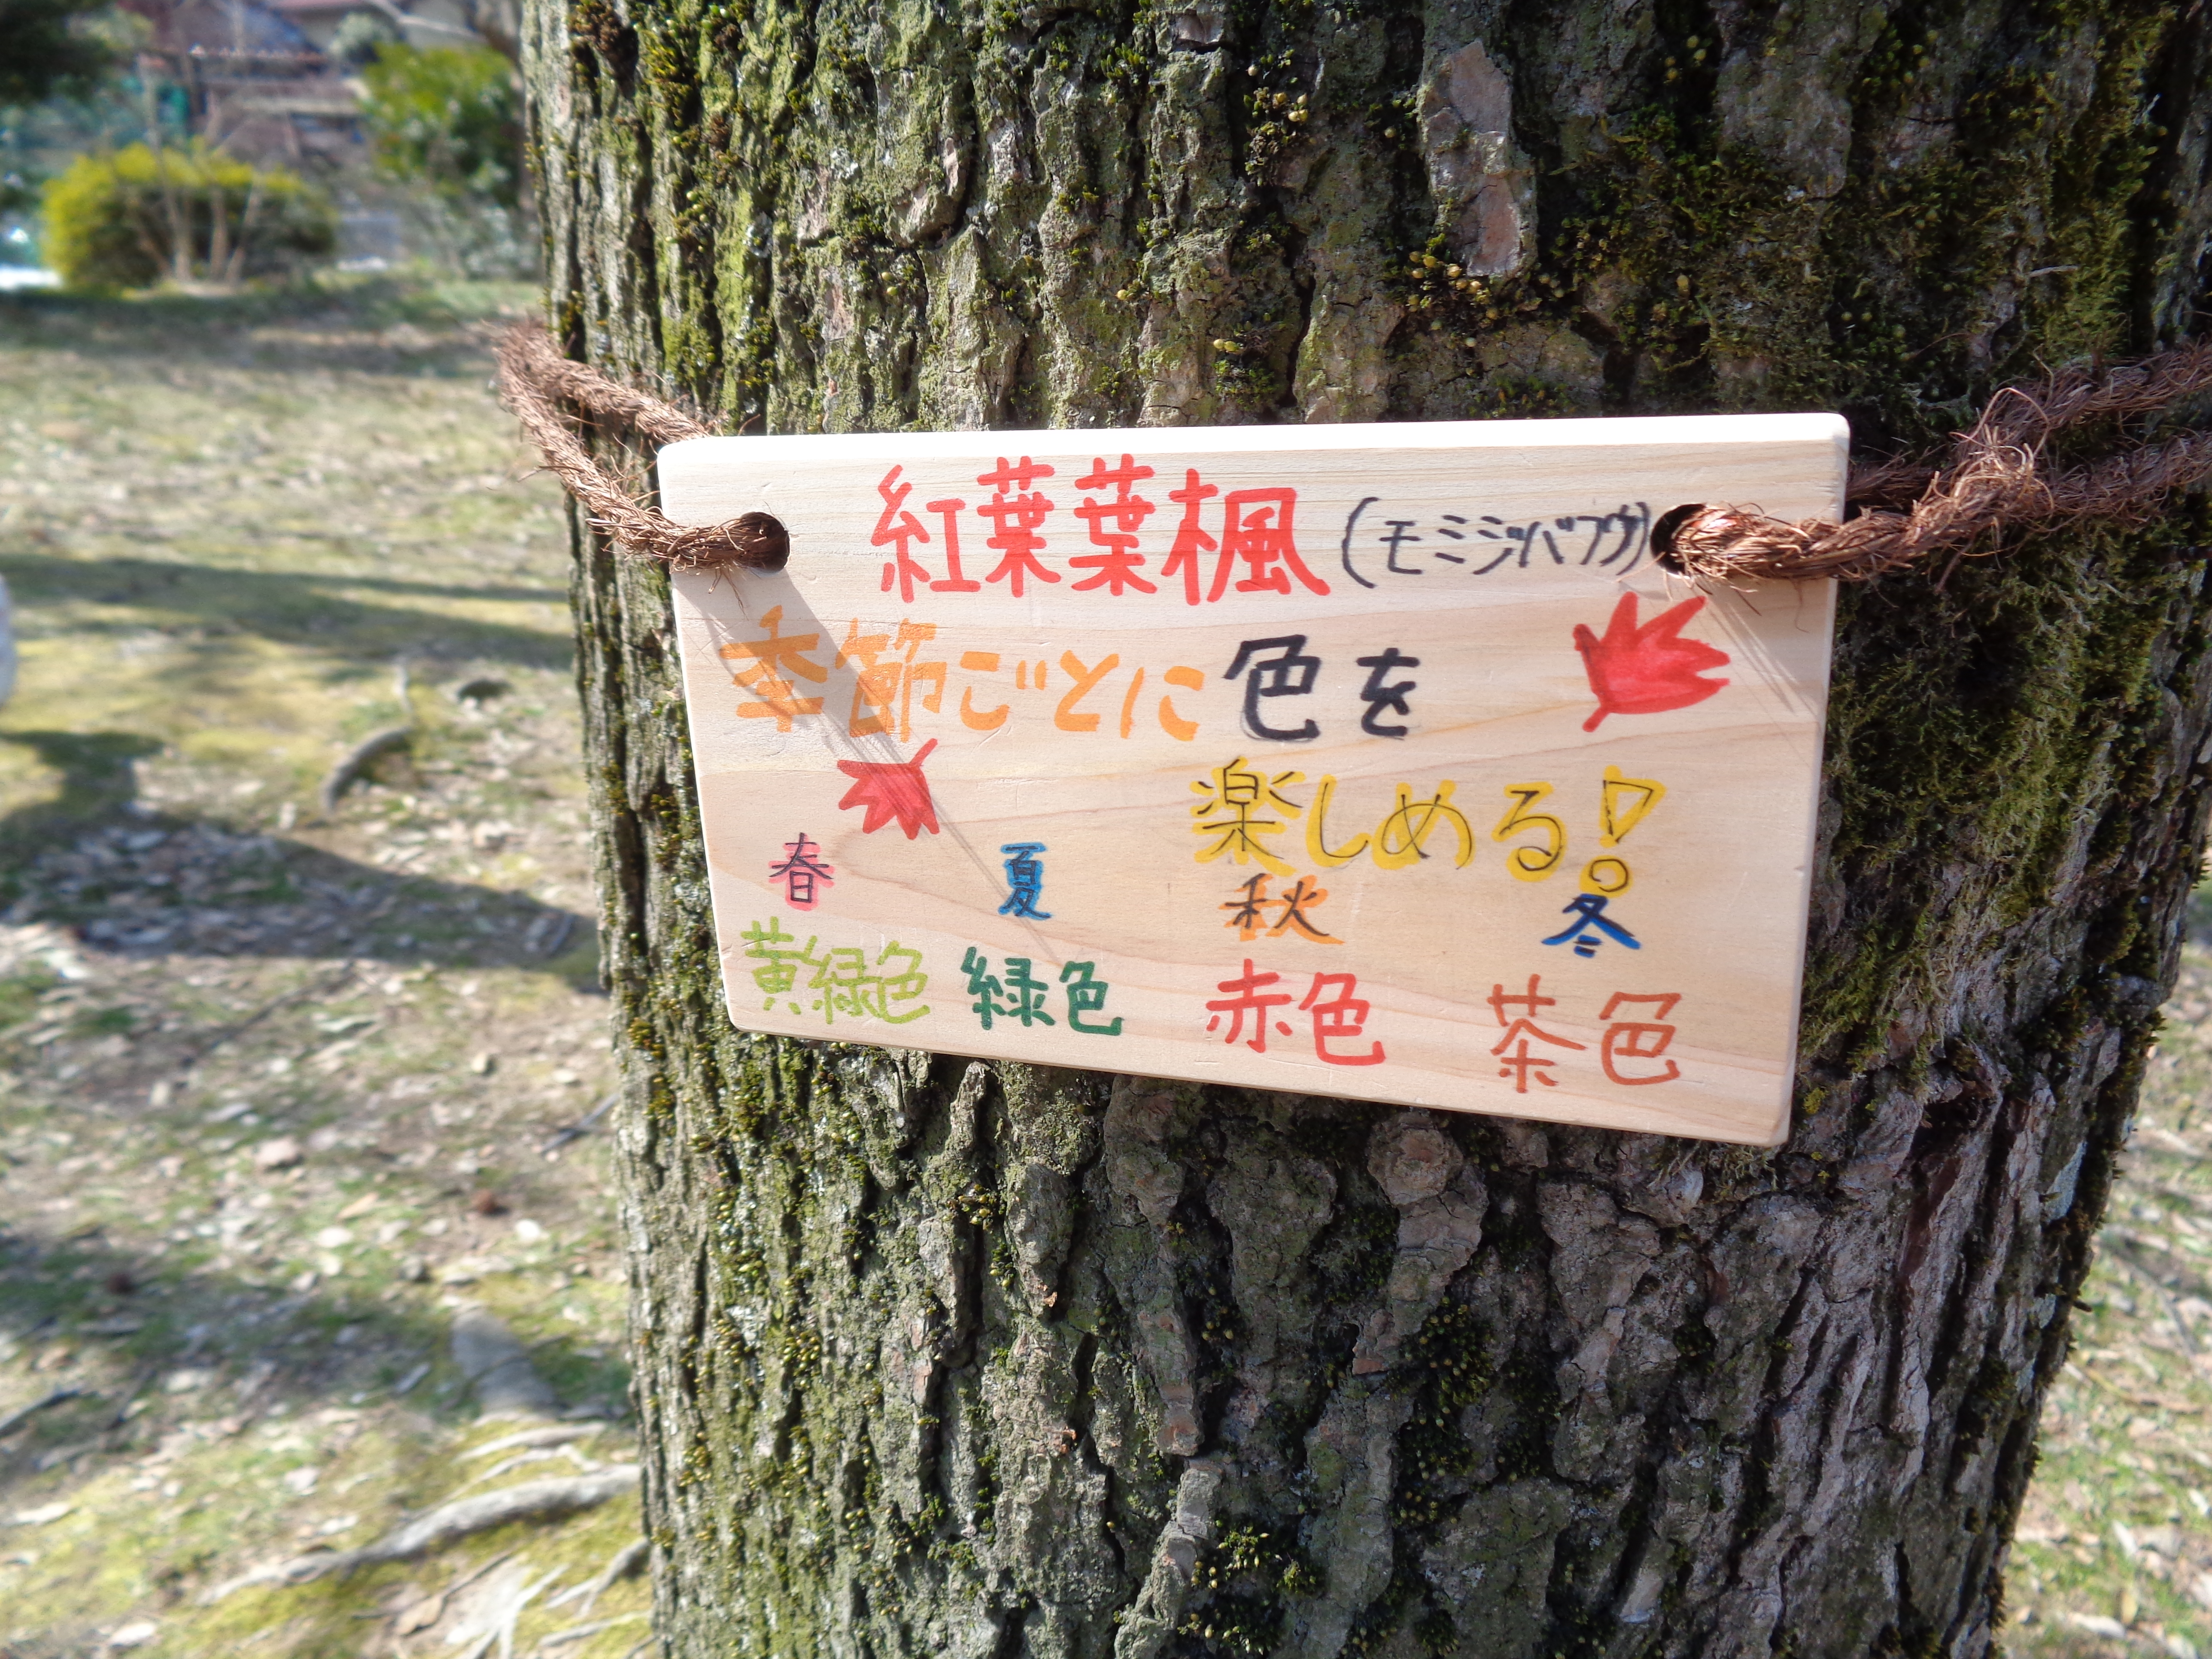 紅葉葉楓(モミジバフウ)
季節ごとに色を
楽しめる!
春 夏 秋 冬
黄緑色 緑色 赤色 茶色